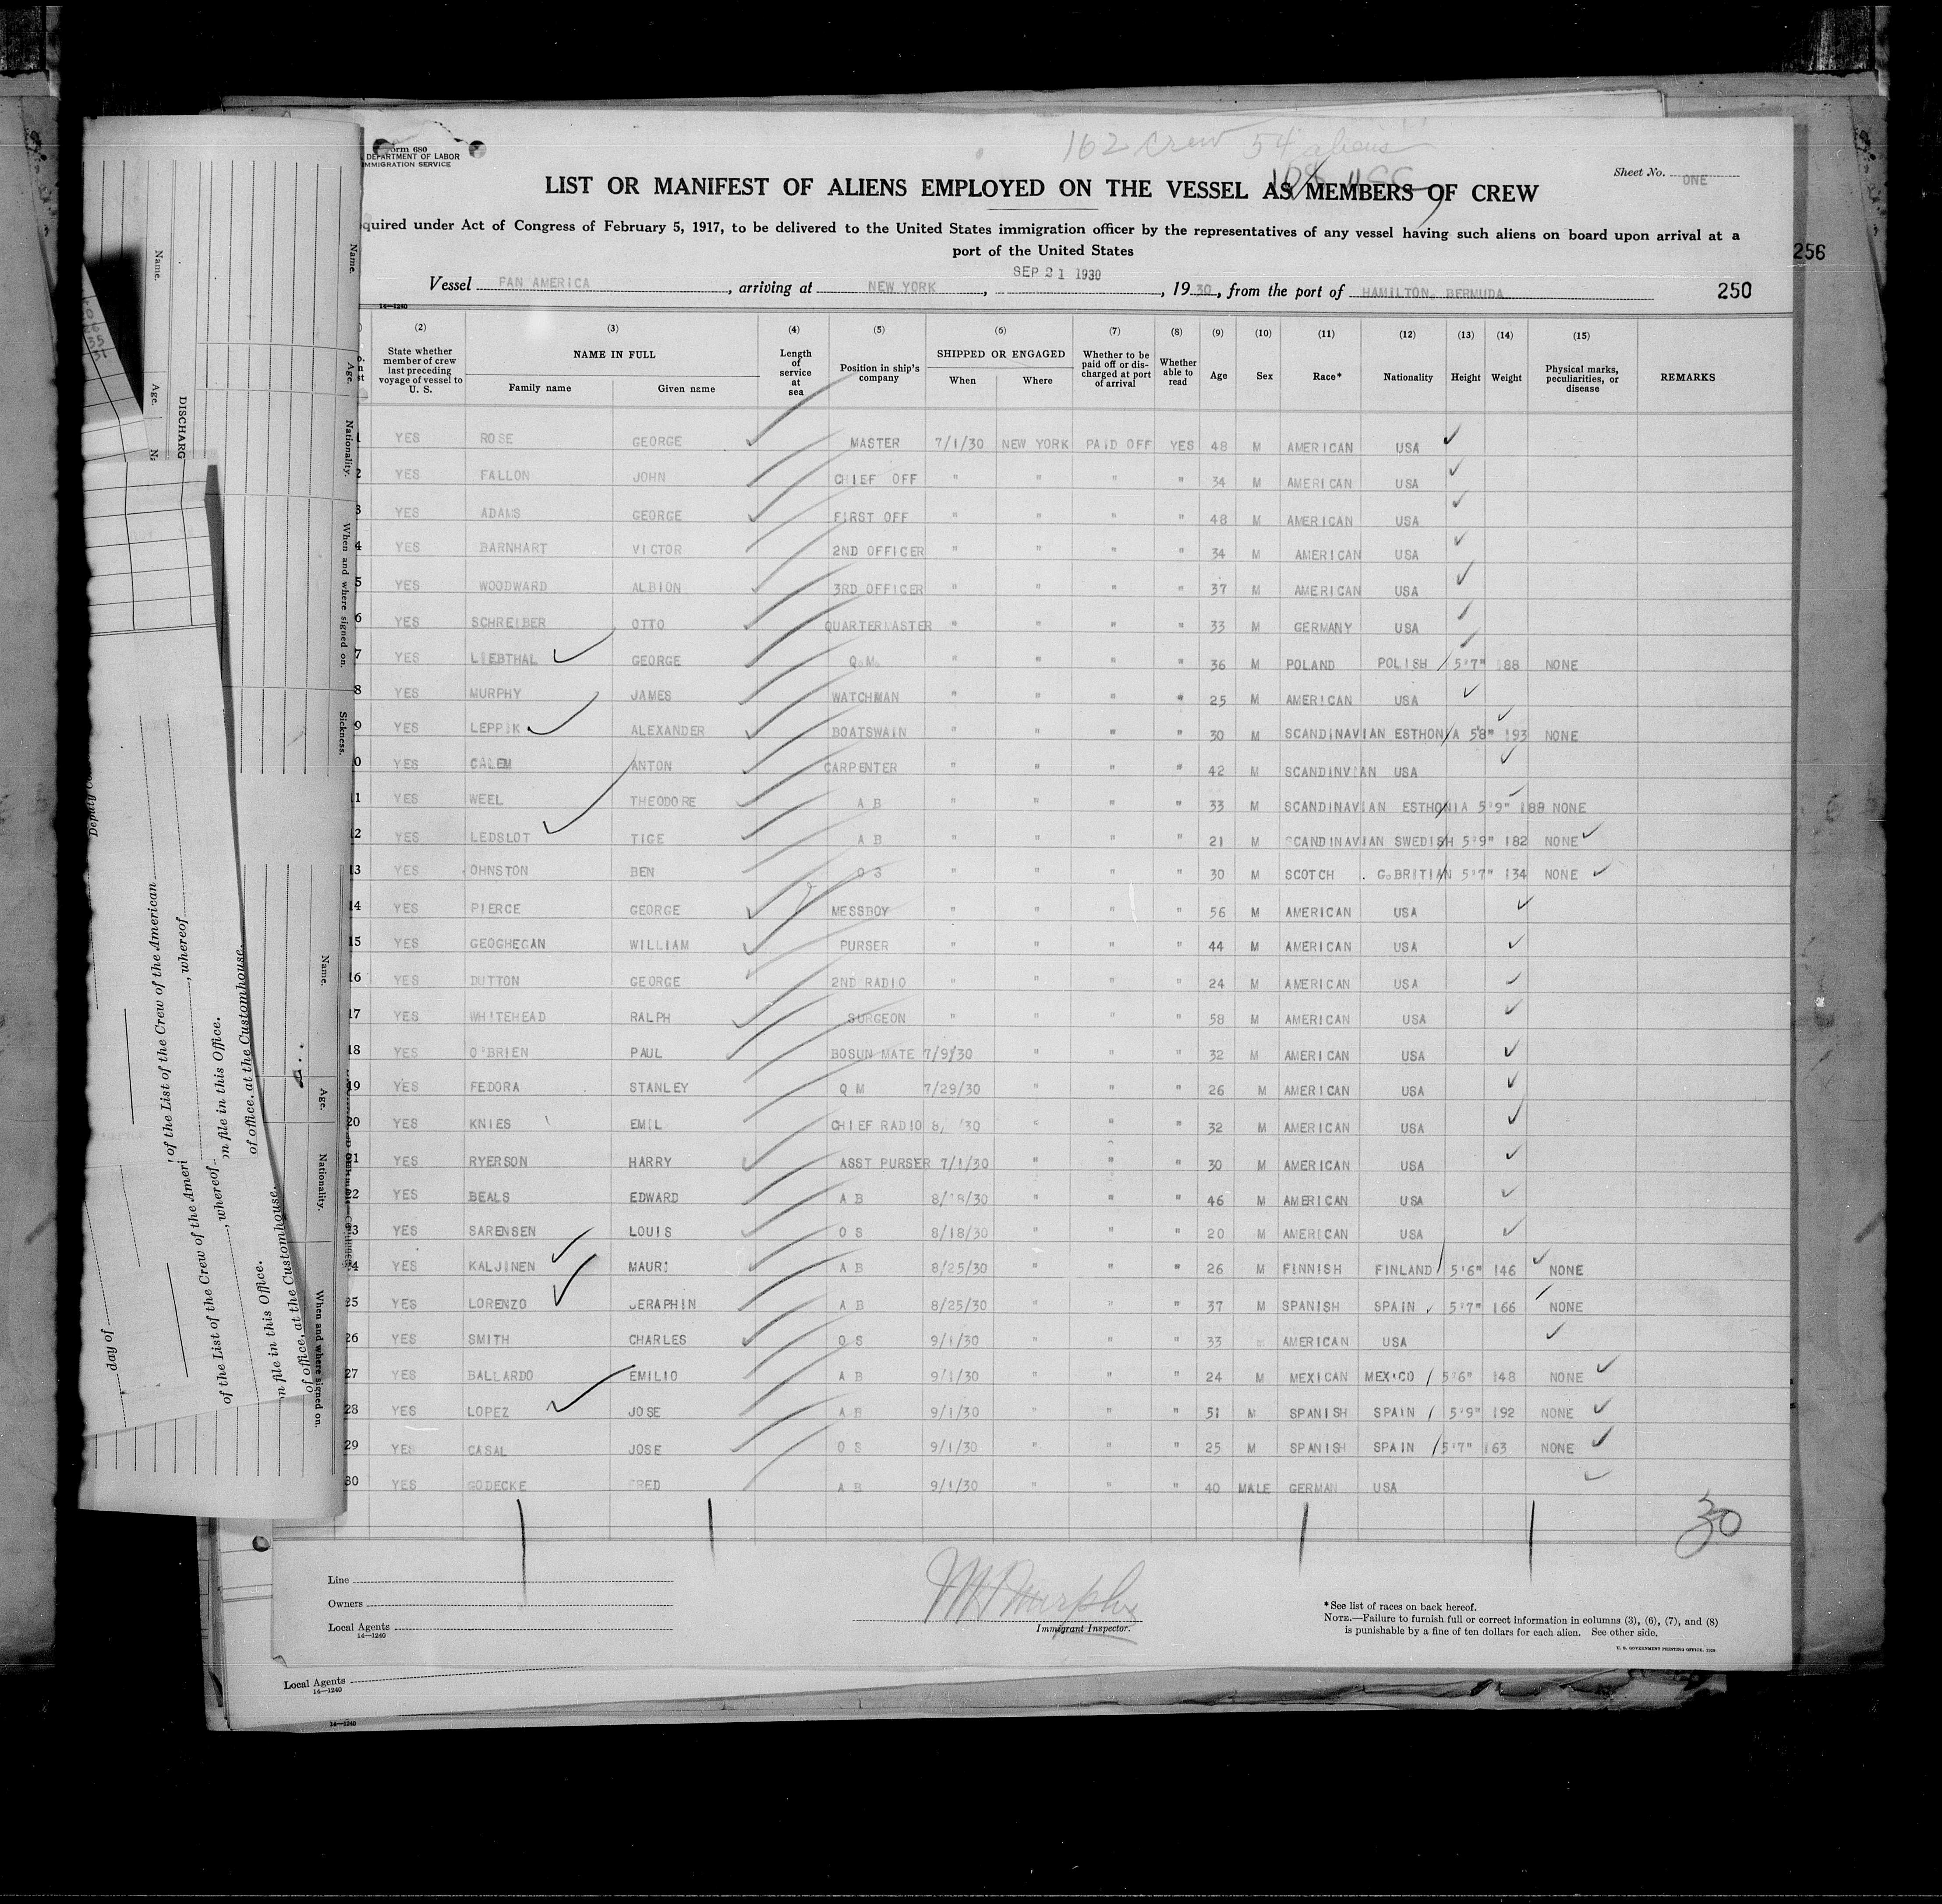 Form 680
DEPARTMENT OF LABOR
IMMIGRATION SERVICE
162 crew 54 aliens
108 USC
Sheet No. ONE
LIST OR MANIFEST OF ALIENS EMPLOYED ON THE VESSEL AS MEMBERS OF CREW
quired under Act of Congress of February 5, 1917, to be delivered to the United States immigration officer by the representatives of any vessel having such aliens on board upon arrival at a
port of the United States
256
SEP 21 1930
Vessel PAN AMERICA, arriving at NEW YORK, , 19 30, from the port of HAMILTON, BERMUDA
250
14—1240
(2) (3) (4) (5) (6) (7) (8) (9) (10) (11) (12) (13) (14) (15)
State whether member of crew last preceding voyage of vessel to U. S. NAME IN FULL Family name Given name Length of service at sea Position in ship's company SHIPPED OR ENGAGED When Where Whether to be paid off or discharged at port of arrival Whether able to read Age Sex Race* Nationality Height Weight Physical marks, peculiarities, or disease REMARKS
1 YES ROSE GEORGE MASTER 7/1/30 NEW YORK PAID OFF YES 48 M AMERICAN USA
2 YES FALLON JOHN CHIEF OFF " " " " 34 M AMERICAN USA
3 YES ADAMS GEORGE FIRST OFF " " " " 48 M AMERICAN USA
4 YES BARNHART VICTOR 2ND OFFICER " " " " 34 M AMERICAN USA
5 YES WOODWARD ALBION 3RD OFFICER " " " " 37 M AMERICAN USA
6 YES SCHREIBER OTTO QUARTERMASTER " " " " 33 M GERMANY USA
7 YES LIEBTHAL GEORGE Q.M. " " " " 36 M POLAND POLISH 5'7" 188 NONE
8 YES MURPHY JAMES WATCHMAN " " " " 25 M AMERICAN USA
9 YES LEPPIK ALEXANDER BOATSWAIN " " " " 30 M SCANDINAVIAN ESTHONIA 5'8" 193 NONE
10 YES CALEM ANTON CARPENTER " " " " 42 M SCANDINVIAN USA
11 YES WEEL THEODORE A B " " " " 33 M SCANDINAVIAN ESTHONIA 5'9" 188 NONE
12 YES LEDSLOT TIGE A B " " " " 21 M SCANDINAVIAN SWEDISH 5'9" 182 NONE
13 YES OHNSTON BEN O S " " " " 30 M SCOTCH G.BRITIAN 5'7" 134 NONE
14 YES PIERCE GEORGE MESSBOY " " " " 56 M AMERICAN USA
15 YES GEOGHEGAN WILLIAM PURSER " " " " 44 M AMERICAN USA
16 YES DUTTON GEORGE 2ND RADIO " " " " 24 M AMERICAN USA
17 YES WHITEHEAD RALPH SURGEON " " " " 58 M AMERICAN USA
18 YES O'BRIEN PAUL BOSUN MATE 7/9/30 " " " 32 M AMERICAN USA
19 YES FEDORA STANLEY Q M 7/29/30 " " " 26 M AMERICAN USA
20 YES KNIES EMIL CHIEF RADIO 8/ /30 " " " 32 M AMERICAN USA
21 YES RYERSON HARRY ASST PURSER 7/1/30 " " " 30 M AMERICAN USA
22 YES BEALS EDWARD A B 8/18/30 " " " 46 M AMERICAN USA
23 YES SARENSEN LOUIS O S 8/18/30 " " " 20 M AMERICAN USA
24 YES KALJINEN MAURI A B 8/25/30 " " " 26 M FINNISH FINLAND 5'6" 146 NONE
25 YES LORENZO JERAPHIN A B 8/25/30 " " " 37 M SPANISH SPAIN 5'7" 166 NONE
26 YES SMITH CHARLES O S 9/1/30 " " " 33 M AMERICAN USA
27 YES BALLARDO EMILIO A B 9/1/30 " " " 24 M MEXICAN MEXICO 5'6" 148 NONE
28 YES LOPEZ JOSE A B 9/1/30 " " " 51 M SPANISH SPAIN 5'9" 192 NONE
29 YES CASAL JOSE O S 9/1/30 " " " 25 M SPANISH SPAIN 5'7" 163 NONE
30 YES GODECKE FRED A B 9/1/30 " " " 40 MALE GERMAN USA
30
Line
Owners
Local Agents
14—1240
Murphy
Immigrant Inspector.
*See list of races on back hereof.
NOTE.—Failure to furnish full or correct information in columns (3), (6), (7), and (8)
is punishable by a fine of ten dollars for each alien. See other side.
U. S. GOVERNMENT PRINTING OFFICE
Local Agents
14—1240
14—1240
Name.
Age.
DISCHARG
Name.
Age.
Nationality.
When and where signed on.
Sickness.
Name.
Age.
Nationality.
When and where signed on.
of the List of the Crew of the American
, whereof
on file in this Office.
of office, at the Customhouse,
day of
of the List of the Crew of the Ameri
, whereof
n file in this Office.
of office, at the Customhouse,